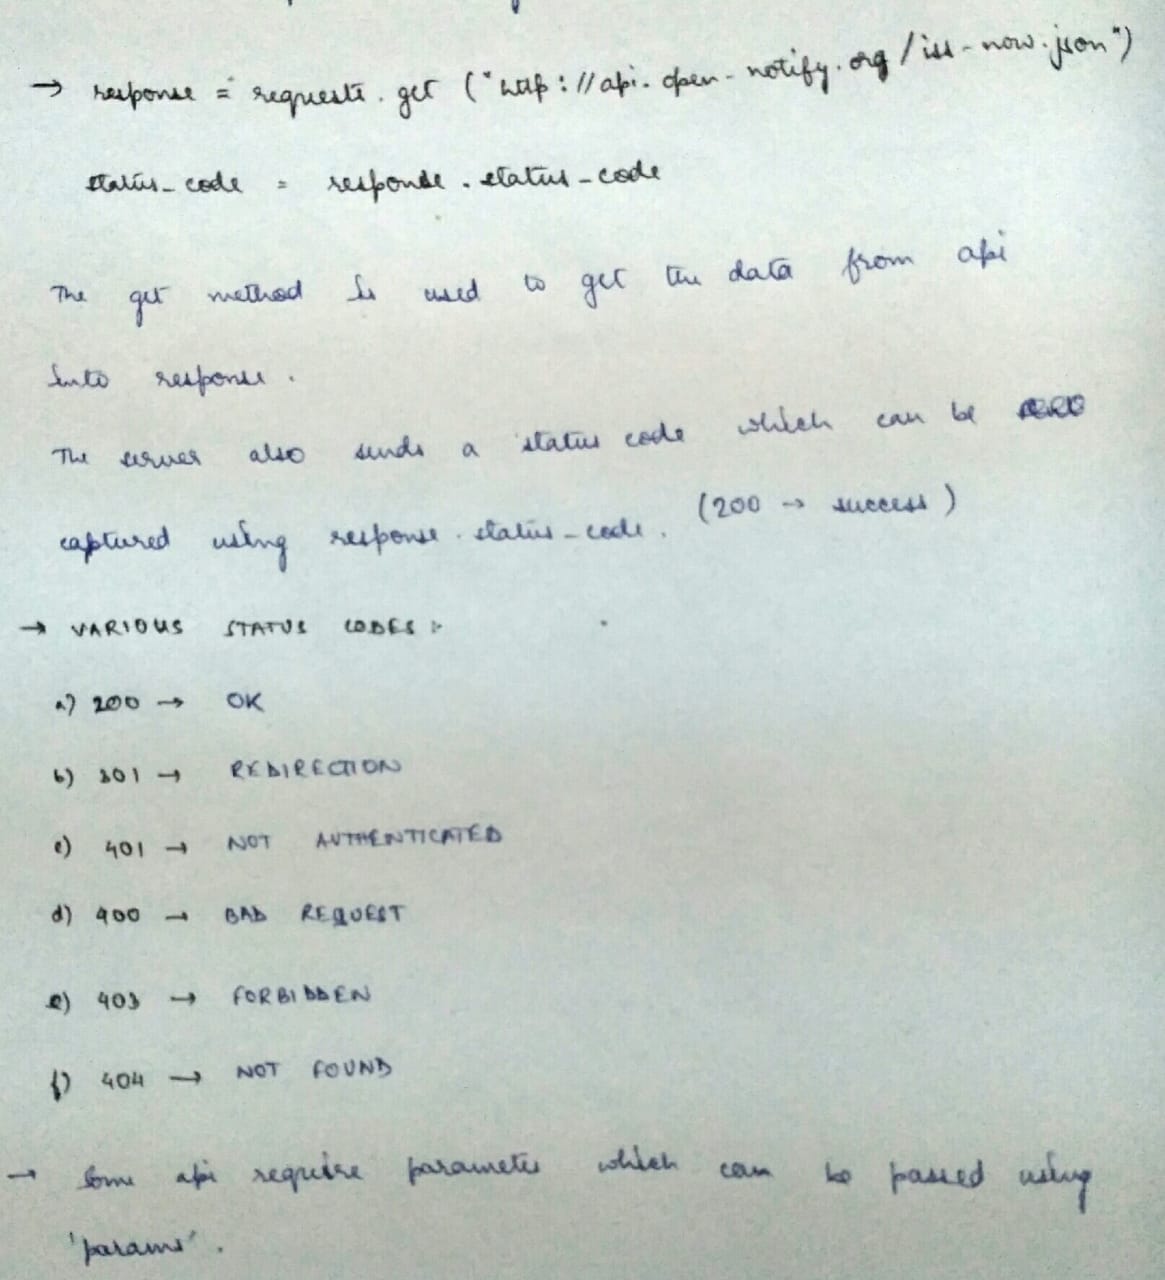 → response = requests.get ("http://api.open-notify.org/iss-now.json")
status_code = response.status_code
The get method is used to get the data from api
into response.
The server also sends a status code which can be
captured using response.status_code. (200 → success)
→ VARIOUS STATUS CODES :-
a) 200 → OK
b) 301 → REDIRECTION
c) 401 → NOT AUTHENTICATED
d) 400 → BAD REQUEST
e) 403 → FORBIDDEN
f) 404 → NOT FOUND
→ Some api require parameter which can be passed using
'params'.